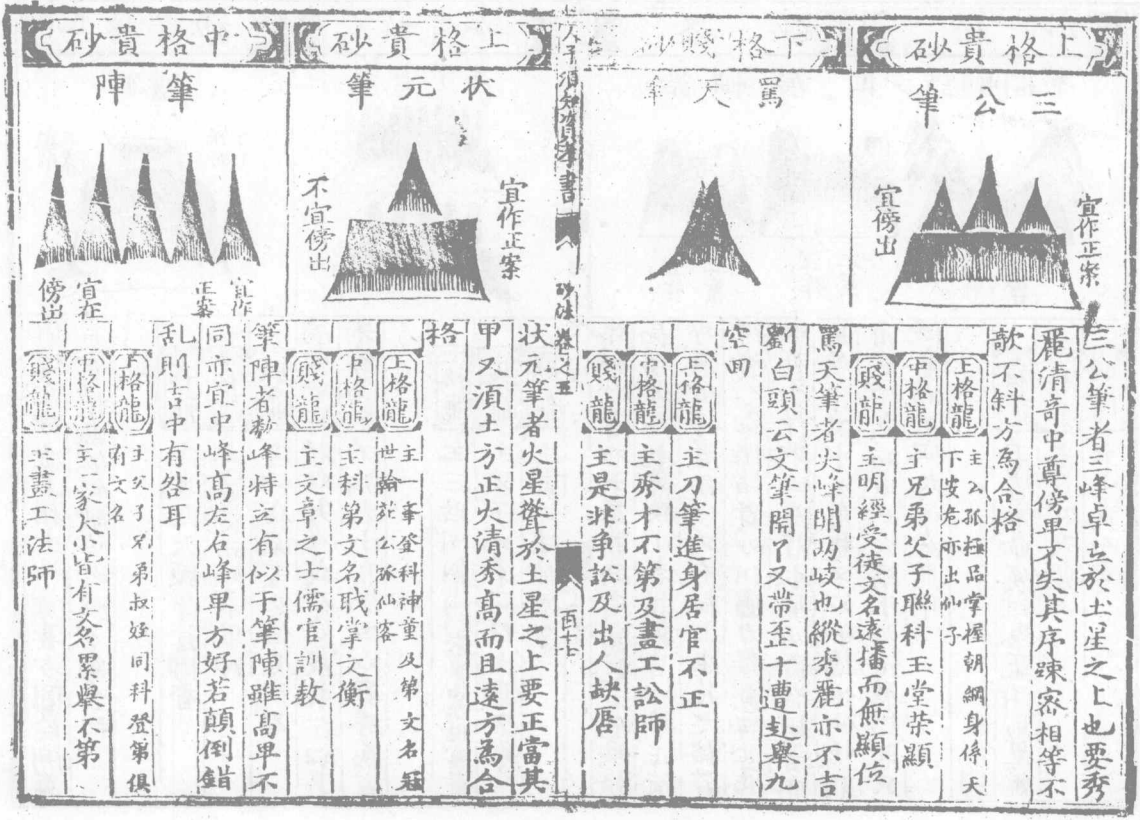 上格貴砂
三公筆
宜作正案
宜傍出
三公筆者三峰卓立於土星之上也要秀
麗清奇中尊傍卑不失其序踈密相等不
欹不斜方為合格
上格龍
主公孤極品掌握朝綱身係天
下安危亦出仙子
中格龍
主兄弟父子聯科玉堂荣顯
賤龍
主明經受徒文名遠播而無顯位
下格賤砂
罵天筆
罵天筆者尖峰開两岐也縱秀麗亦不吉
劉白頭云文筆開了又帶歪十遭赴舉九
空回
上格龍
主刀筆進身居官不正
中格龍
主秀才不第及畫工訟師
賤龍
主是非争訟及出人缺唇
人子須知資孝書
砂法卷之五
上格貴砂
状元筆
宜作正案
不宜傍出
状元筆者火星聳於土星之上要正當其
甲又須土方正火清秀高而且遠方為合
格
上格龍
主一舉登科神童及第文名
世翰苑
仙客
中格龍
主科第文名職掌文衡
賤龍
主文章之士儒官訓教
中格貴砂
筆陣
宜作
正案
宜在
傍出
筆陣者数峰特立有似于筆陣雖高卑不
同亦宜中峰高左右峰卑方好若顛倒錯
乱則吉中有咎耳
上格龍
主父子兄弟叔姪同科登第俱
有文名
中格龍
主一家大小皆有文名累舉不第
賤龍
主畫工法師